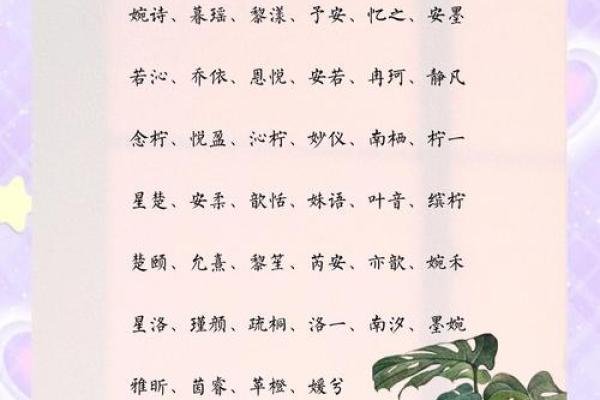 婉诗、暮瑶、黎漾、予安、忆之、安墨
若沁、乔依、恩悦、安若、冉珂、静凡
念柠、悦盈、沁柠、妙仪、南栖、柠一
星楚、安柔、歆恬、姝语、叶音、缤柠
楚颐、允熹、黎笙、芮安、亦歆、婉禾
星洛、瑾颜、疏桐、洛一、南汐、墨婉
雅昕、茵睿、苹橙、媛兮